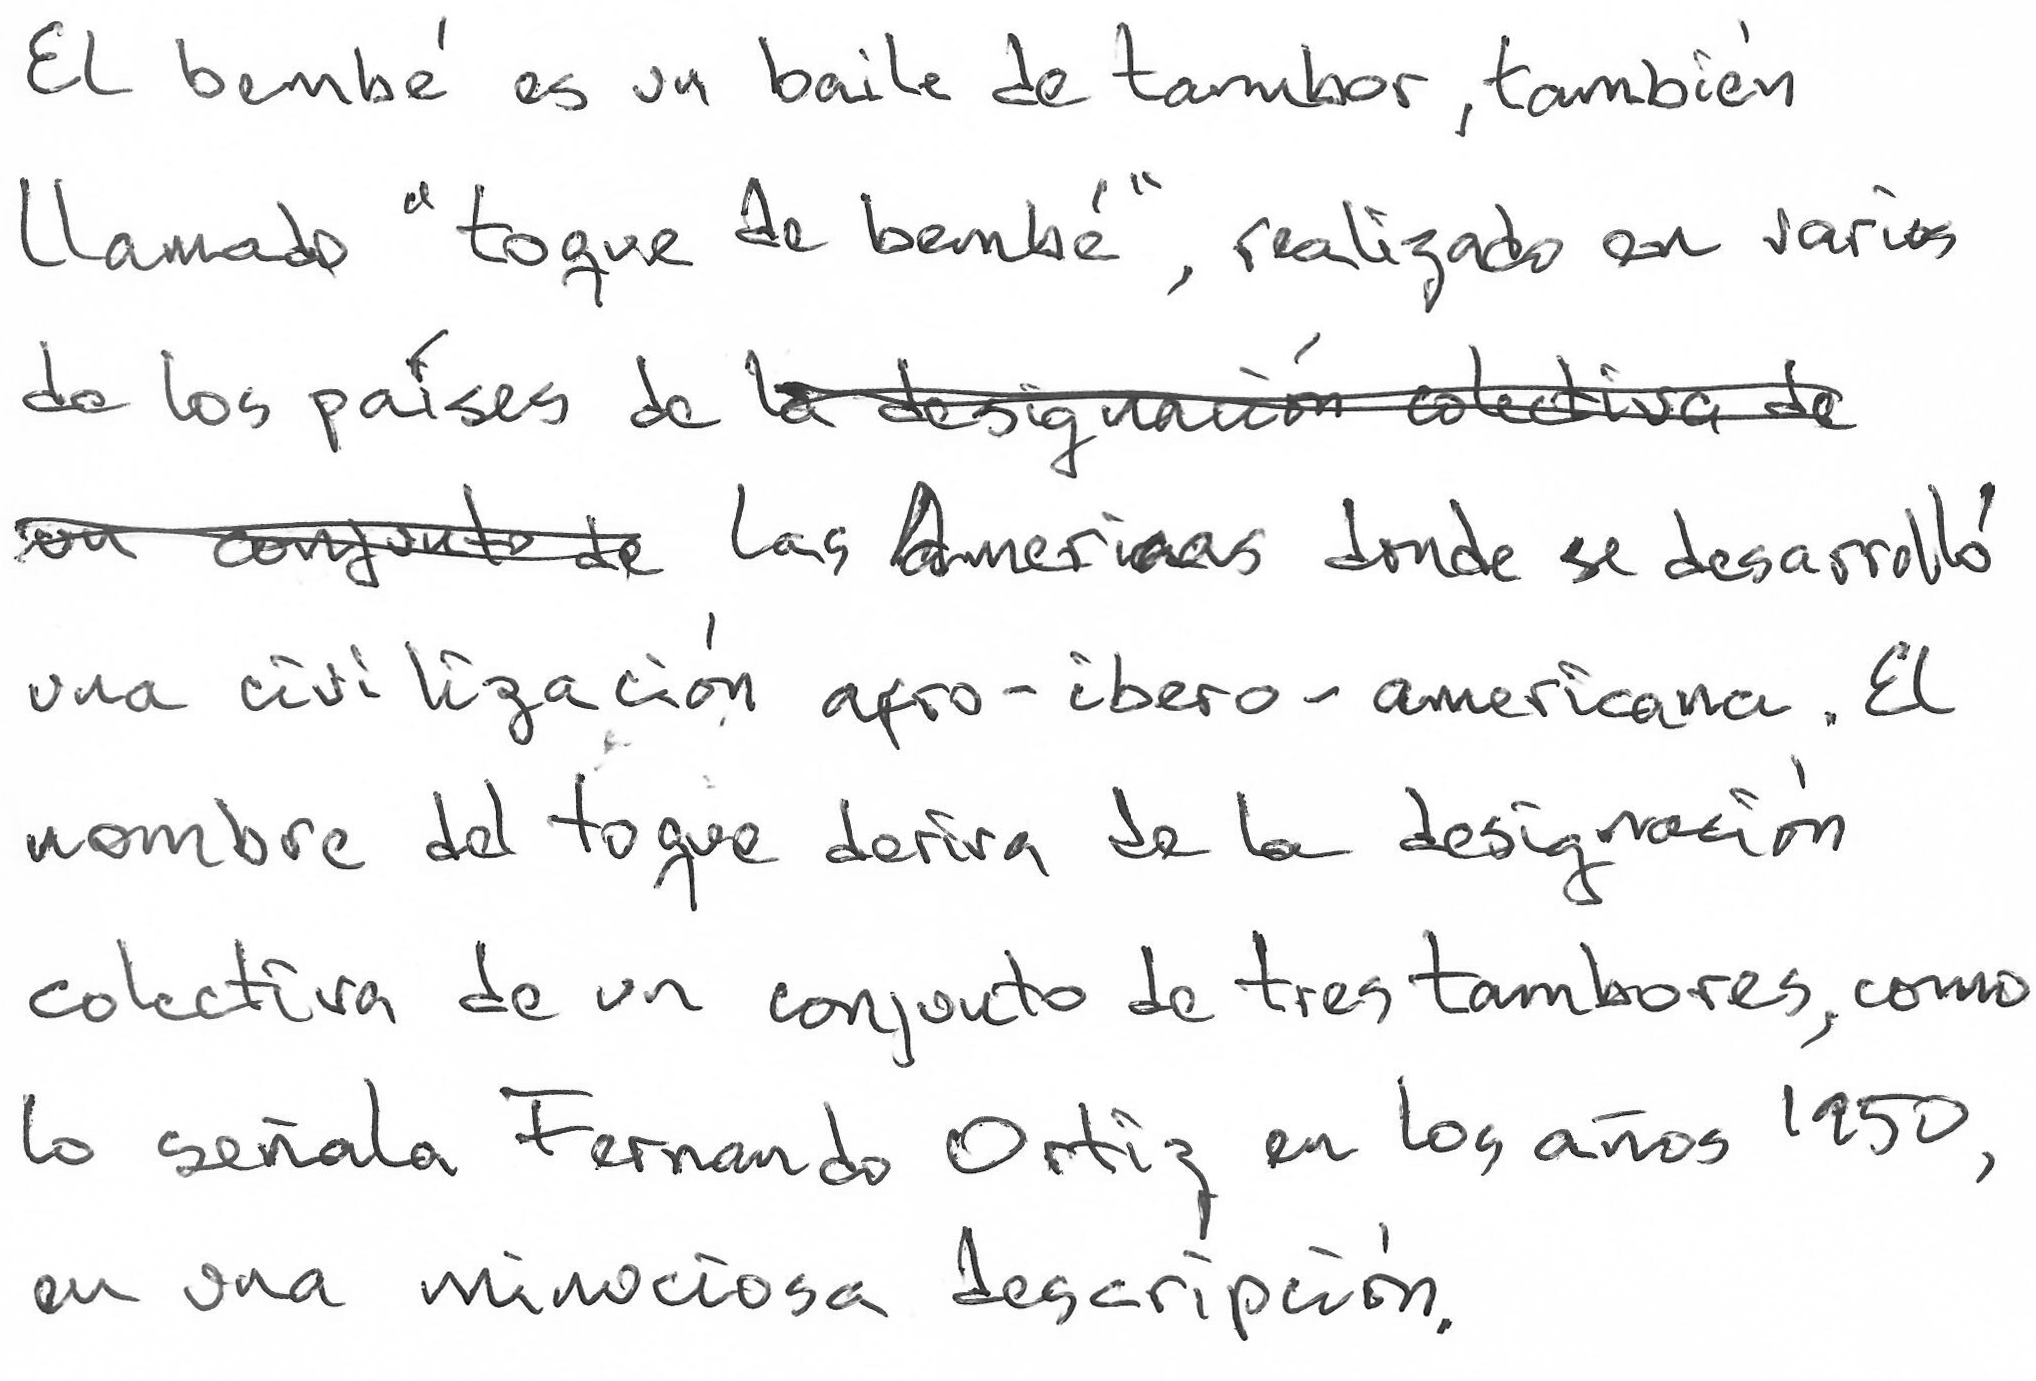 El bembé es un baile de tambor, también
llamado "toque de bembé", realizado en varios
de los países de la designación colectiva de
un conjunto de las Americas donde se desarrolló
una civilización afro-ibero-americana. El
nombre del toque deriva de la designación
colectiva de un conjunto de tres tambores, como
lo señala Fernando Ortiz en los años 1950,
en una minuciosa descripción.